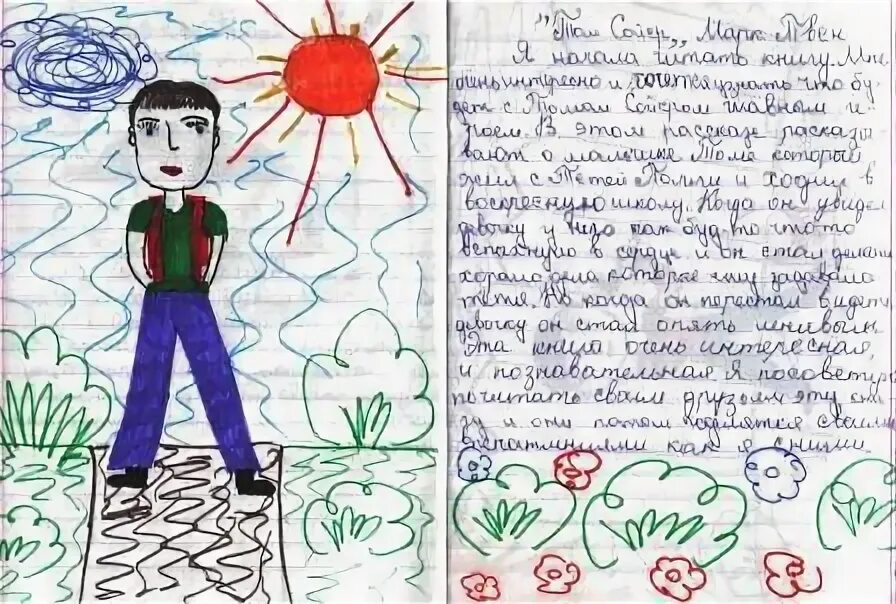 "Том Сойер,, Марк Твен
Я начала читать книгу. Мне
очень интересно и узнать что бу
дет с Томам Сойером главным ге
роем. В этом рассказе расказы
вают о мальчике Томе который
жил с Тётей Полли и ходил в
воскресную школу. Когда он увидел
девочку у него как буд-то что то
вспыхнуло в сердце и он стал делать
хорошо дела которые ему задавала
тётя. Но когда он перестал видеть
девочку он стал опять ленивым
Эта книга очень интересная,
и познавательная Я посоветую
почитать своим друзьям эту кни
гу и они потом поделятся своими
впечатлениями как я с ними.